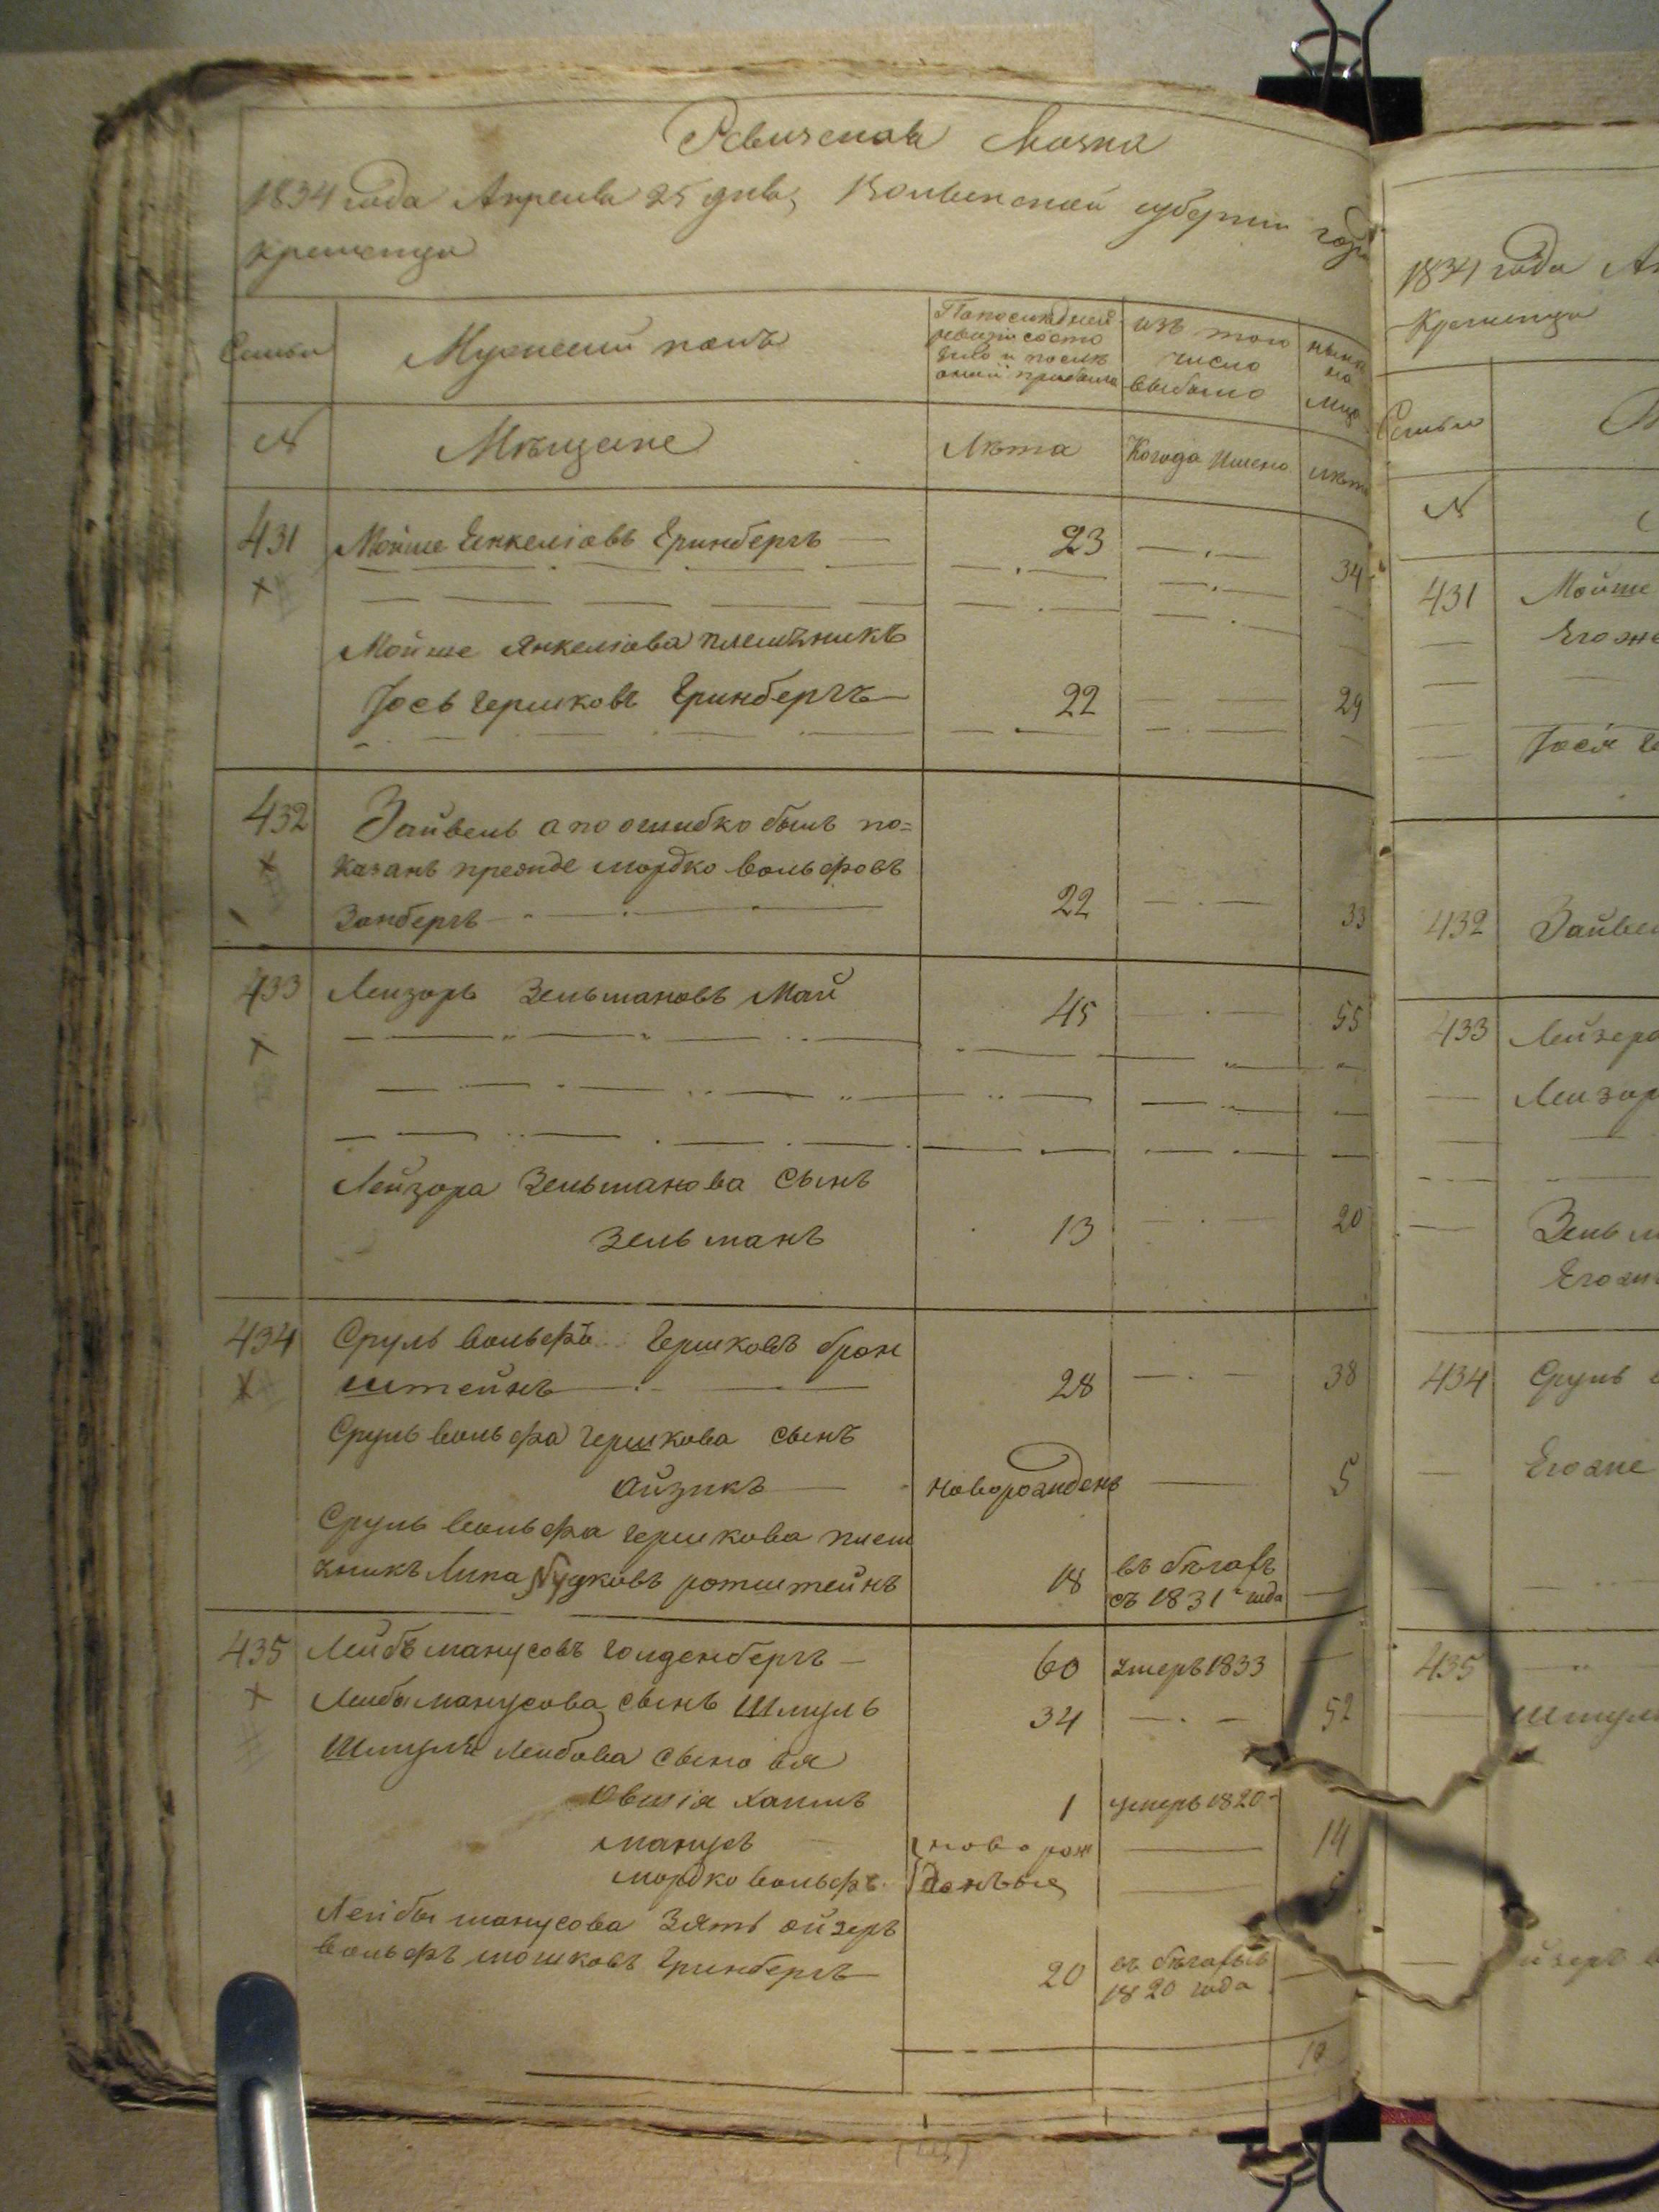 Ревизская Сказка
1834 года Апреля 25 дня, Волынской губернии города
Кременца
Семьи
Мужеский полъ
По последней ревизіи состояло и после оной прибыло
изъ того числа выбыло
ныне на лицо
№
Мѣщане
Лѣта
Когда Имено
Лѣта
431 Мойше Янкеліовъ Гринбергъ — 23 — 34
Мойше Янкеліова племѣникъ
Іось Гершковъ Гринбергъ — 22 — 29
432 Зайвель а по ошибко былъ по=
казанъ прежде Мордко Вольфовъ
Занбергъ 22 — 33
433 Лейзоръ Зельмановъ Май 45 — 55
Лейзора Зельманова сынъ
Зельманъ 13 — 20
434 Сруль Вольфъ Гершковъ брон
штейнъ 28 — 38
Сруль Вольфа Гершкова сынъ
Айзикъ — новорожденъ — 5
Сруль Вольфа Гершкова плем
ѣникъ Липа Юдковъ ротштейнъ 18 въ бѣгахъ
съ 1831 года —
435 Лейбъ Манусовъ Голденбергъ — 60 умеръ 1833 —
Лейбы Манусова сынъ Шмуль 34 — 52
Шмуля Лейбова сыновья
Овшія Хаимъ 1 умеръ 1820
Манусъ новорож — 14
Мордко Вольфъ денные —
Лейбы Манусова Зять Ойзеръ
Вольфъ Мошковъ Гринбергъ — 20 въ бѣгахъ
1820 года —
1834 года
Кременца
Семьи
№
431 Мойше
Его же
432
433
434 Сруль
Его же
435